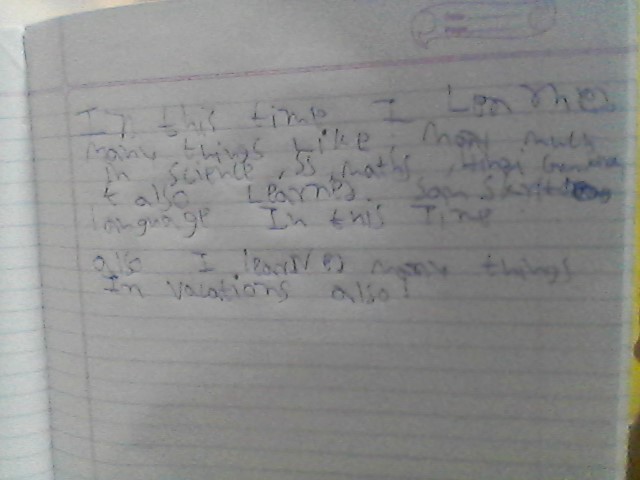 In this time I Learnes
many things Like many much
in science, ss, maths,
t also Learnes. Sanskrit
language In this Time
also I learnes many things
In vacations also!